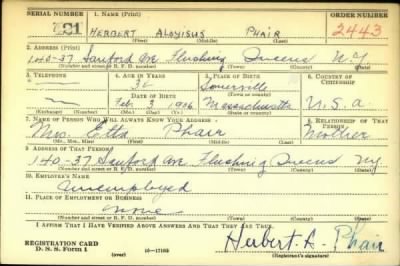 SERIAL NUMBER 1. NAME (Print) ORDER NUMBER
721 HERBERT ALOYISUS PHAIR 2443
2. ADDRESS (Print)
140-37 Sanford Ave Flushing Queens N.Y
(Number and street or R. F. D. number) (Town) (County) (State)
3. TELEPHONE 4. AGE IN YEARS 5. PLACE OF BIRTH 6. COUNTRY OF CITIZENSHIP
Somerville
DATE OF BIRTH
Feb. 3 1906 Massachusetts U.S.a
(Exchange) (Number) (Mo.) (Day) (Yr.) (State or country)
7. NAME OF PERSON WHO WILL ALWAYS KNOW YOUR ADDRESS 8. RELATIONSHIP OF THAT PERSON
Mrs. Etta Phair Mother
(Mr., Mrs., Miss) (First) (Middle) (Last)
9. ADDRESS OF THAT PERSON
140-37 Sanford Ave Flushing Queens NY
(Number and street or R. F. D. number) (Town) (County) (State)
10. EMPLOYER'S NAME
Unemployed
11. PLACE OF EMPLOYMENT OR BUSINESS
none
(Number and street or R. F. D. number) (Town) (County) (State)
I AFFIRM THAT I HAVE VERIFIED ABOVE ANSWERS AND THAT THEY ARE TRUE.
REGISTRATION CARD
D. S. S. Form 1 (over) 16-17105 Herbert A. Phair